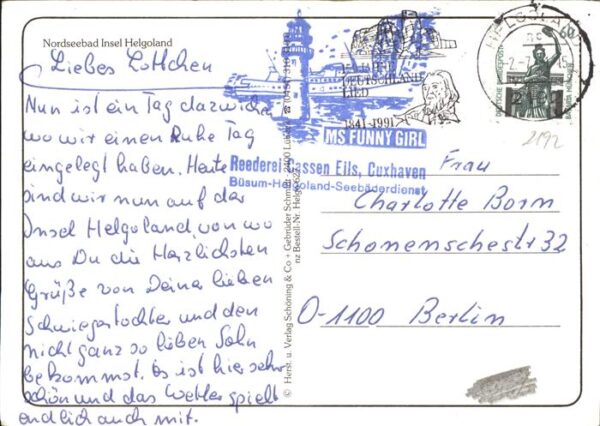 Nordseebad Insel Helgoland
Liebes Lottchen
Nun ist ein Tag dazwischen
wo wir einen Ruhe Tag
eingelegt haben. Heute
sind wir nun auf der
Insel Helgoland, von wo
aus Du die Herzlichsten
Grüße von Deiner lieben
Schwiegertochter und den
nicht ganz so lieben Sohn
bekommst. Es ist hier sehr
schön und das Wetter spielt
endlich auch mit.
© Herst. u. Verlag Schöning & Co + Gebrüder Schmidt
Bestell-Nr. Helgo
DEUTSCHLAND
LIED
1841-1991
MS FUNNY GIRL
Reederei Cassen Eils, Cuxhaven
Büsum-Helgoland-Seebäderdienst
HELGOLAND
60
DEUTSCHE BUNDESPOST
2192
Frau
Charlotte Born
Schonenschestr 32
O-1100 Berlin